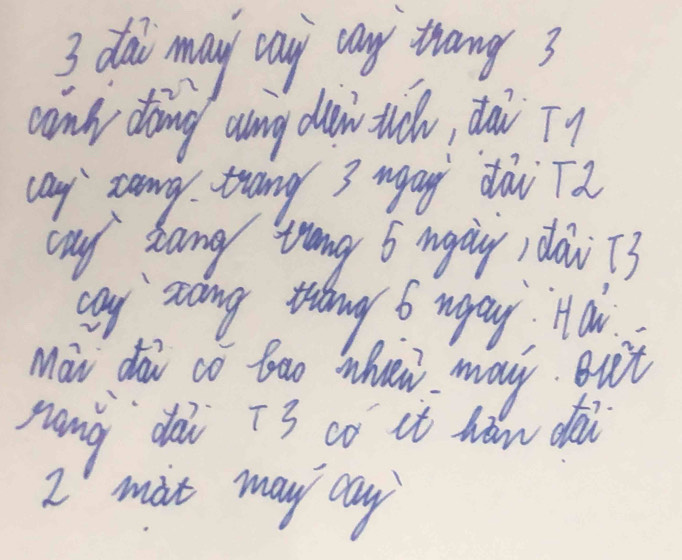 3 đôi máy cày cày trong 3
cánh đồng cùng diện tích, đôi T1
cày xong trong 3 ngày đôi T2
cày xong trong 5 ngày, đôi T3
cày xong trong 6 ngày. Hỏi
Mỗi đôi có bao nhiêu máy. Biết
rằng đôi T3 có ít hơn đôi
2 một máy cày